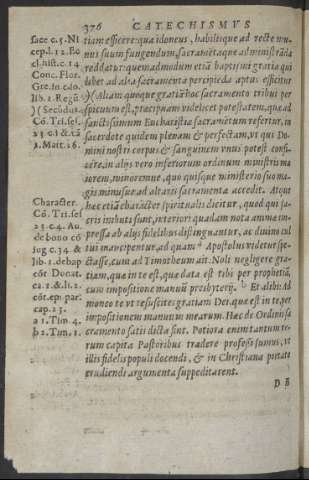 376 CATECHISMVS
tiam efficere: qua idoneus, habilisque ad recte mu-
nus suum fungendum, sacramētaque administrāda
reddatur: quemadmodum etiā baptismi gratia qui
libet ad alia sacramenta percipiēda aptus efficitur
)( Aliam quoque gratiā hoc sacramento tribui per
spicuum est, præcipuam videlicet potestatem, quæ ad
sanctissimum Eucharistiæ sacramētum refertur, in
sacerdote quidem plenam & perfectam, vt qui Do-
mini nostri corpus & sanguinem vnus potest confi-
cere, in alijs vero inferiorum ordinum ministris ma
iorem, minoremue, quo quisque ministerio suo ma-
gis minusue ad altaris sacramenta accedit. Atque
hæc etiā character spiritualis dicitur, quod qui sa-
cris imbuti sunt, interiori quadam nota animæ im-
pressa ab alijs fidelibus distinguantur, ac diuino cul
tui mancipentur, ad quam a Apostolus videtur spe-
ctasse, cum ad Timotheum ait. Noli negligere gra-
tiam, quæ in te est, quæ data est tibi per prophetiā,
cum impositione manuū presbyterij. b Et alibi: Ad
moneo te vt resuscites gratiam Dei, quæ est in te, per
impositionem manuum mearum. Hæc de Ordinis sa
cramento satis dicta sint. Potiora enim tantum re-
rum capita Pastoribus tradere professi sumus, vt
illis fidelis populi docendi, & in Christiana pietate
erudiendi argumenta suppeditarent.
D E
face c. 5. Ni
cep. l. 12. Ec
cl. hist. c. 14.
Conc. Flor.
Gre. in cōō.
lib. 1. Regū.
)( Secūdus.
Cō. Tri. ses.
23. c. 1. & cā
1. Mait. 16.
Character.
Cō. Tri. ses
23. c. 4. Au.
de bono cō
iug. c. 34. &
lib. 1. de bap
cōt Donat.
ca. 1. & li. 2.
cōt. ep. par.
cap. 13.
a 1. Tim. 4.
b 2. Tim. 1.